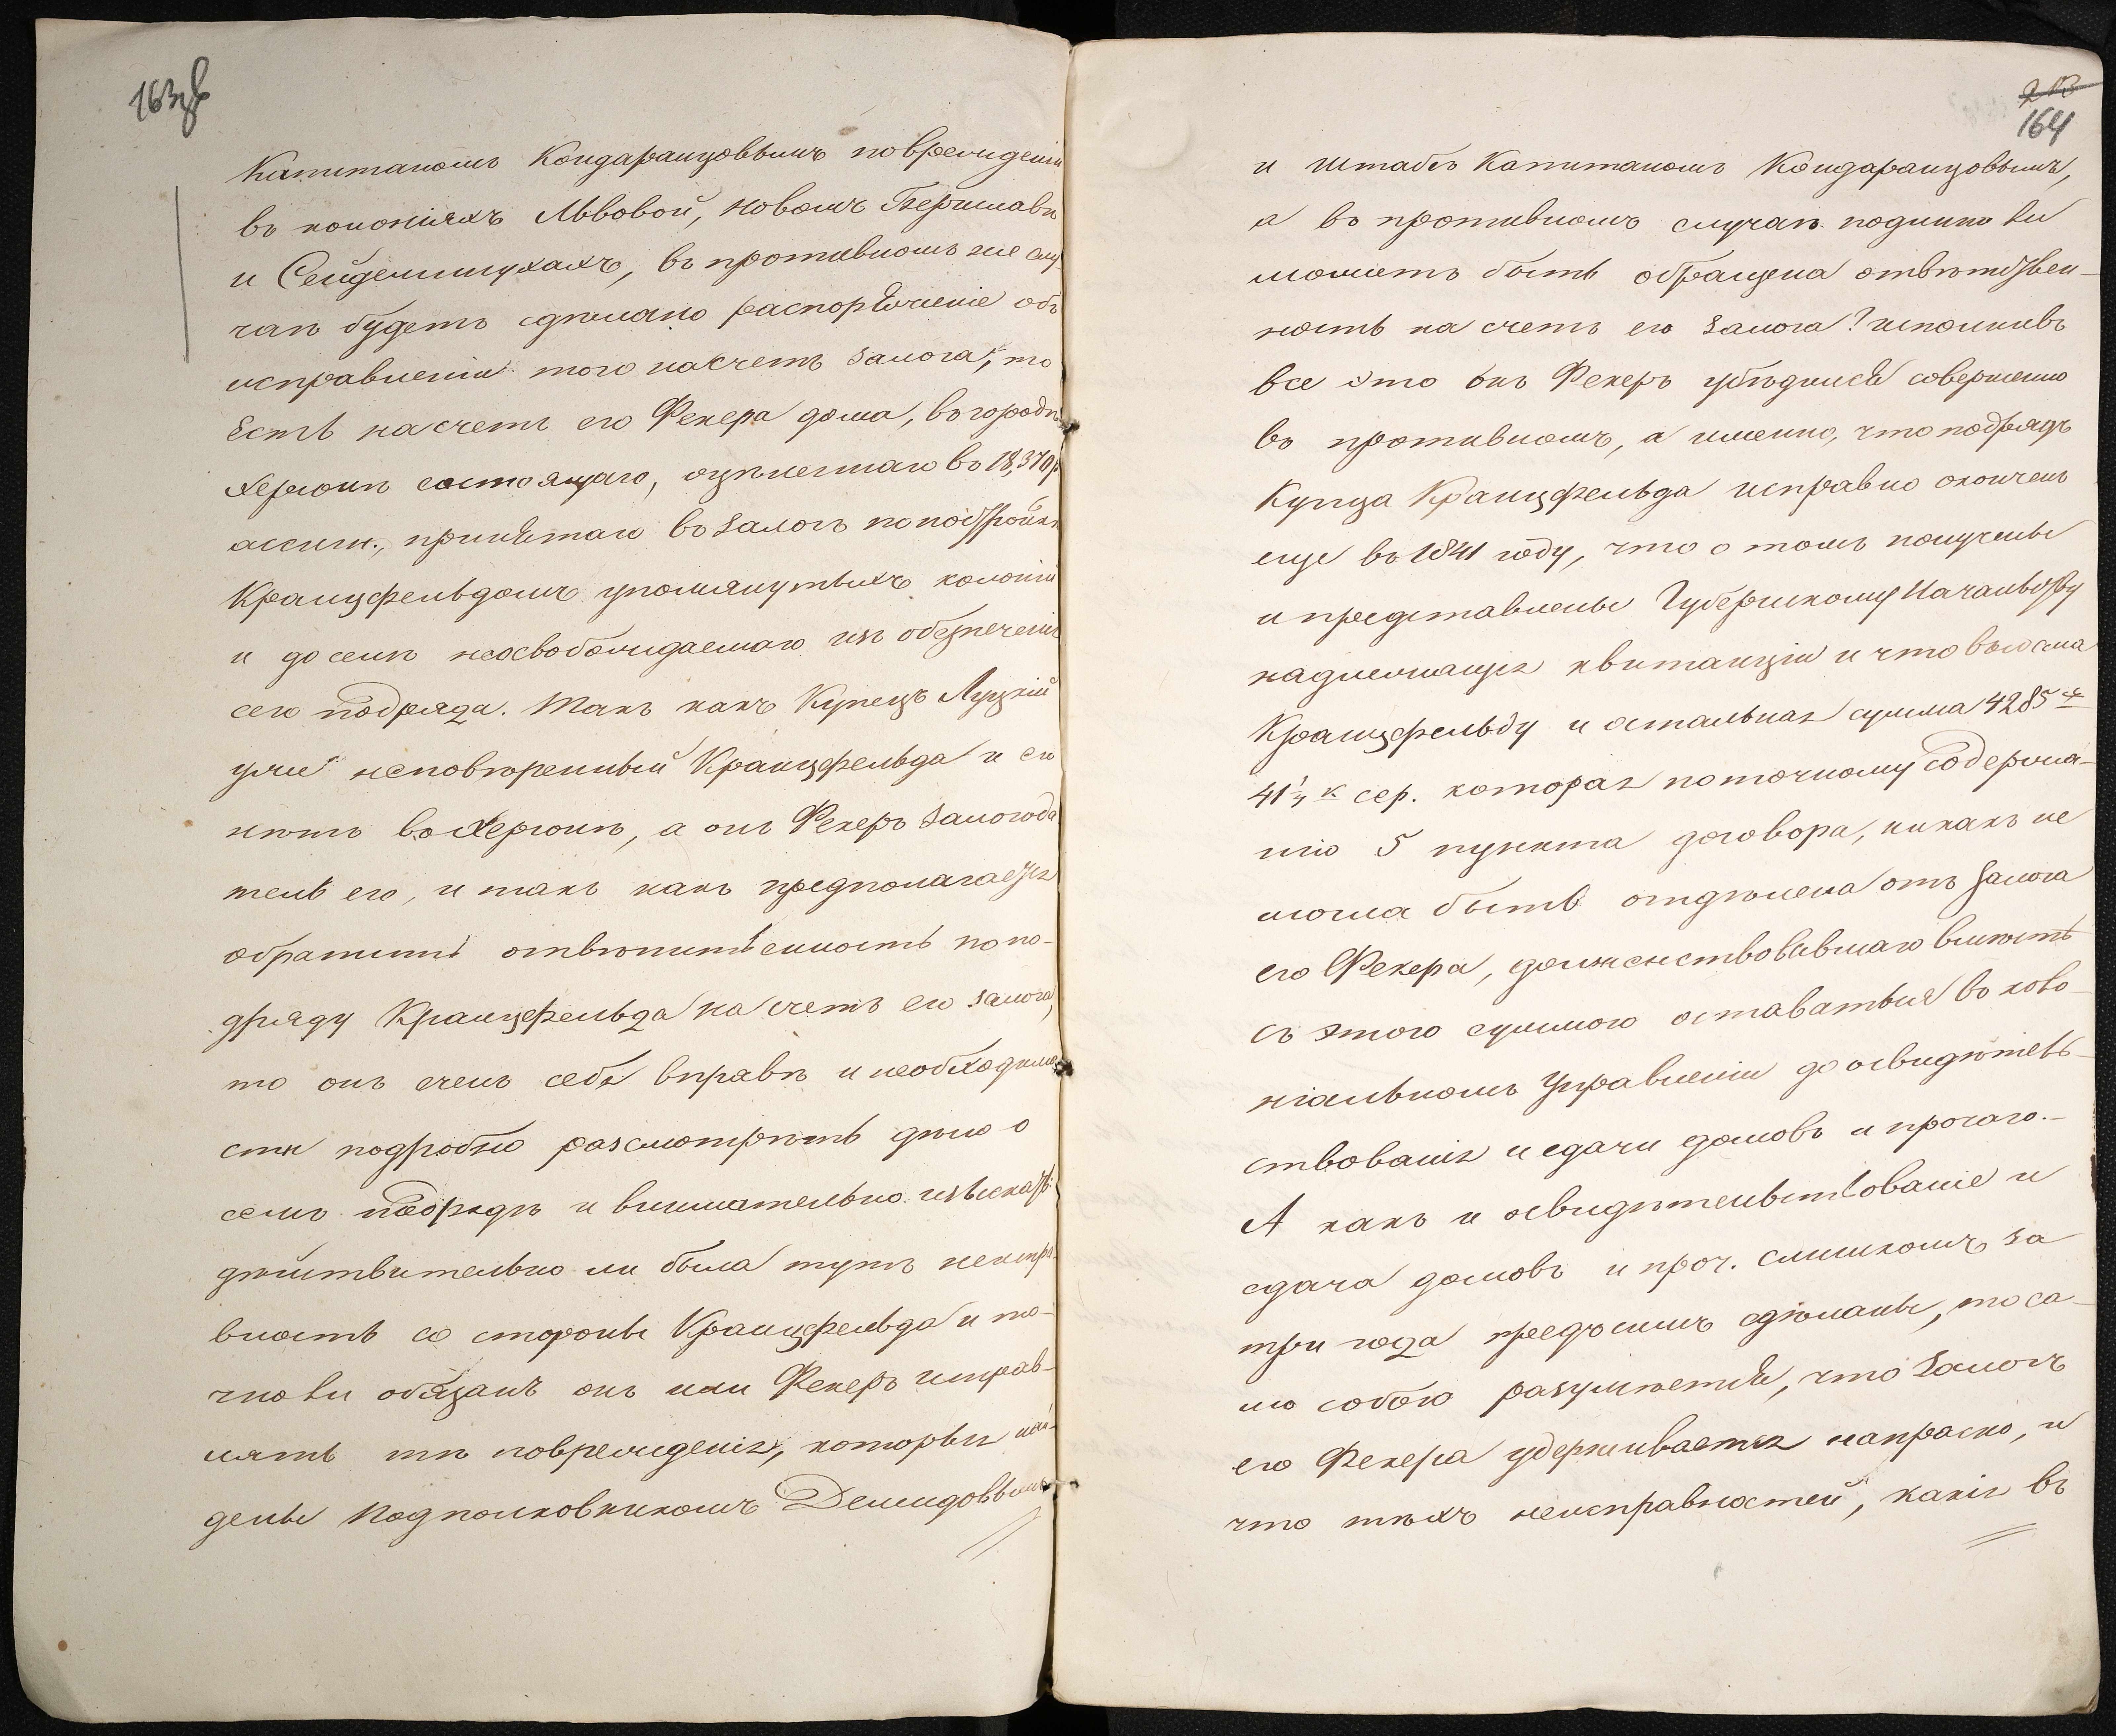 163 зв
Капитаномъ Кондаранцовымъ поврежденія
въ колоніяхъ Львовой, Новомъ Бериславѣ
и Сейдеминухахъ, въ противномъ же слу-
чаѣ будетъ сдѣлано распоряженіе объ
исправленіи того насчетъ залога, то
есть насчетъ его Фекера дома, въ городѣ
Херсонѣ состоящаго, оцѣненнаго въ 18,370 р
ассигн., принятаго въ залогъ по постройкѣ
Кранцфельдомъ упомянутыхъ колоній
и доселѣ неосвобождаемаго изъ обезпеченія
сего подряда. Такъ какъ Купецъ Луцкій
уже неповѣренный Кранцфельда и его
нѣтъ въ Херсонѣ, а онъ Фекеръ залогода
тель его, и такъ какъ предполагается
обратить отвѣтственность по по-
дряду Кранцфельда на счетъ его залога,
то онъ счелъ себя вправѣ и необходимо
сти подробно разсмотрѣть дѣло о
семъ подрядѣ и внимательно изыскать:
дѣйствительно ли была тутъ неиспра-
вность со стороны Кранцфельда и то-
чно ли обязанъ онъ или Фекеръ исправ-
лять тѣ поврежденія, которыя най-
дены Подполковникомъ Демидовымъ
213
164
и Штабсъ Капитаномъ Кондаранцовымъ,
а въ противномъ случаѣ подлинно ли
можетъ быть обращена отвѣтствен-
ность на счетъ его залога? исполнивъ
все это онъ Фекеръ убѣдился совершенно
въ противномъ, а именно, что подрядъ
Купца Кранцфельда исправно оконченъ
еще въ 1841 году, что о томъ получены
и представлены Губернскому Начальству
надлежащія квитанціи и что выдана
Кранцфельду и остальная сумма 4285
41¼ к сер. которая по точному содержа-
нію 5 пункта договора, никакъ не
могла быть отдѣлена отъ залога
его Фекера, долженствовавшаго вмѣстѣ
съ этою суммою оставаться въ коло-
ніальномъ Управленіи до освидѣтель-
ствованія и сдачи домовъ и прочаго.-
А какъ и освидѣтельствованіе и
сдача домовъ и проч. слишкомъ за
три года предъ симъ сдѣланы, то са-
мо собою разумѣется, что залогъ
его Фекера удерживается напрасно, и
что тѣхъ неисправностей, какія въ